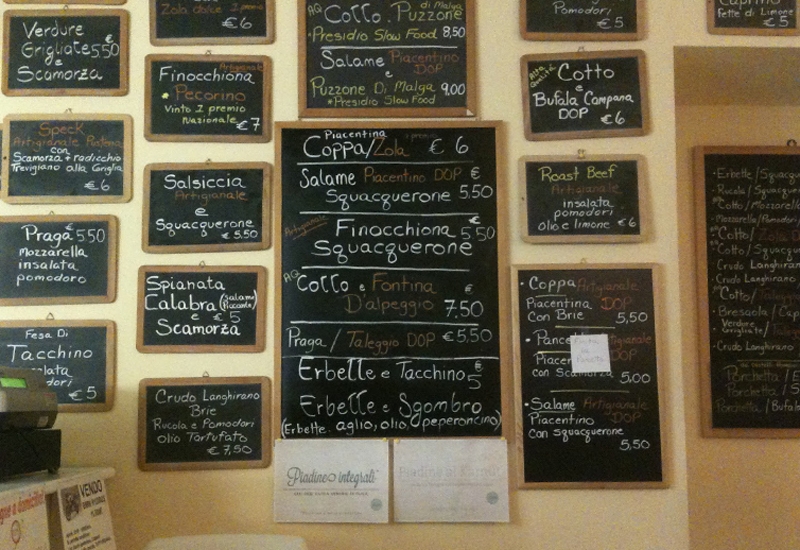 Verdure
Grigliate €5,50
e
Scamorza
Speck
Artigianale
con
Scamorza + radicchio
Trevigiano alla Griglia
€6
Praga €5,50
Mozzarella
insalata
pomodoro
Fesa Di
Tacchino
€5
Zola dolce
€6
Artigianale
Finocchiona
e Pecorino
Vinto 1 premio
Nazionale €7
Salsiccia
Artigianale
e
Squacquerone
€5,50
Spianata
Calabra (Salame Piccante)
e €5
Scamorza
Crudo Langhirano
Brie
Rucola e Pomodori
olio Tartufato
€7,50
AQ Cotto e Puzzone di Malga
*Presidio Slow Food 8,50
Salame Piacentino DOP
e
Puzzone Di Malga 9,00
*Presidio Slow Food
Piacentina
Coppa/Zola €6
Salame Piacentino DOP €
Squacquerone 5,50
Artigianale Finocchiona €
Squacquerone 5,50
AQ Cotto e Fontina
D'alpeggio 7,50
Praga / Taleggio DOP €5,50
Erbette e Tacchino €5
Erbette e Sgombro
(Erbette aglio, olio, peperoncino)
Piadine integrali
Pomodori
€5
Alta Qualità Cotto
e
Bufala Campana
DOP €6
Roast Beef
Artigianale
insalata
pomodori
olio e limone €6
• Coppa Artigianale
Piacentina DOP
con Brie 5,50
con Scamorza
5,00
• Salame Artigianale
Piacentino DOP
con squacquerone
5,50
Caprino
Fette di Limone
€5
• Erbette/Squacqu
• Rucola/Squacquer
• Cotto/Mozzarella
Mozzarella/Pomodori
• Cotto/Zola D
• Cotto/Squacqu
Crudo Langhiran
Crudo Langhirano
• Cotto/Taleggi
• Bresaola/Cap
Verdure Grigliate/
• Crudo Langhirano
Porchetta/E
Porchetta/S
Porchetta/Bufal
VENDO